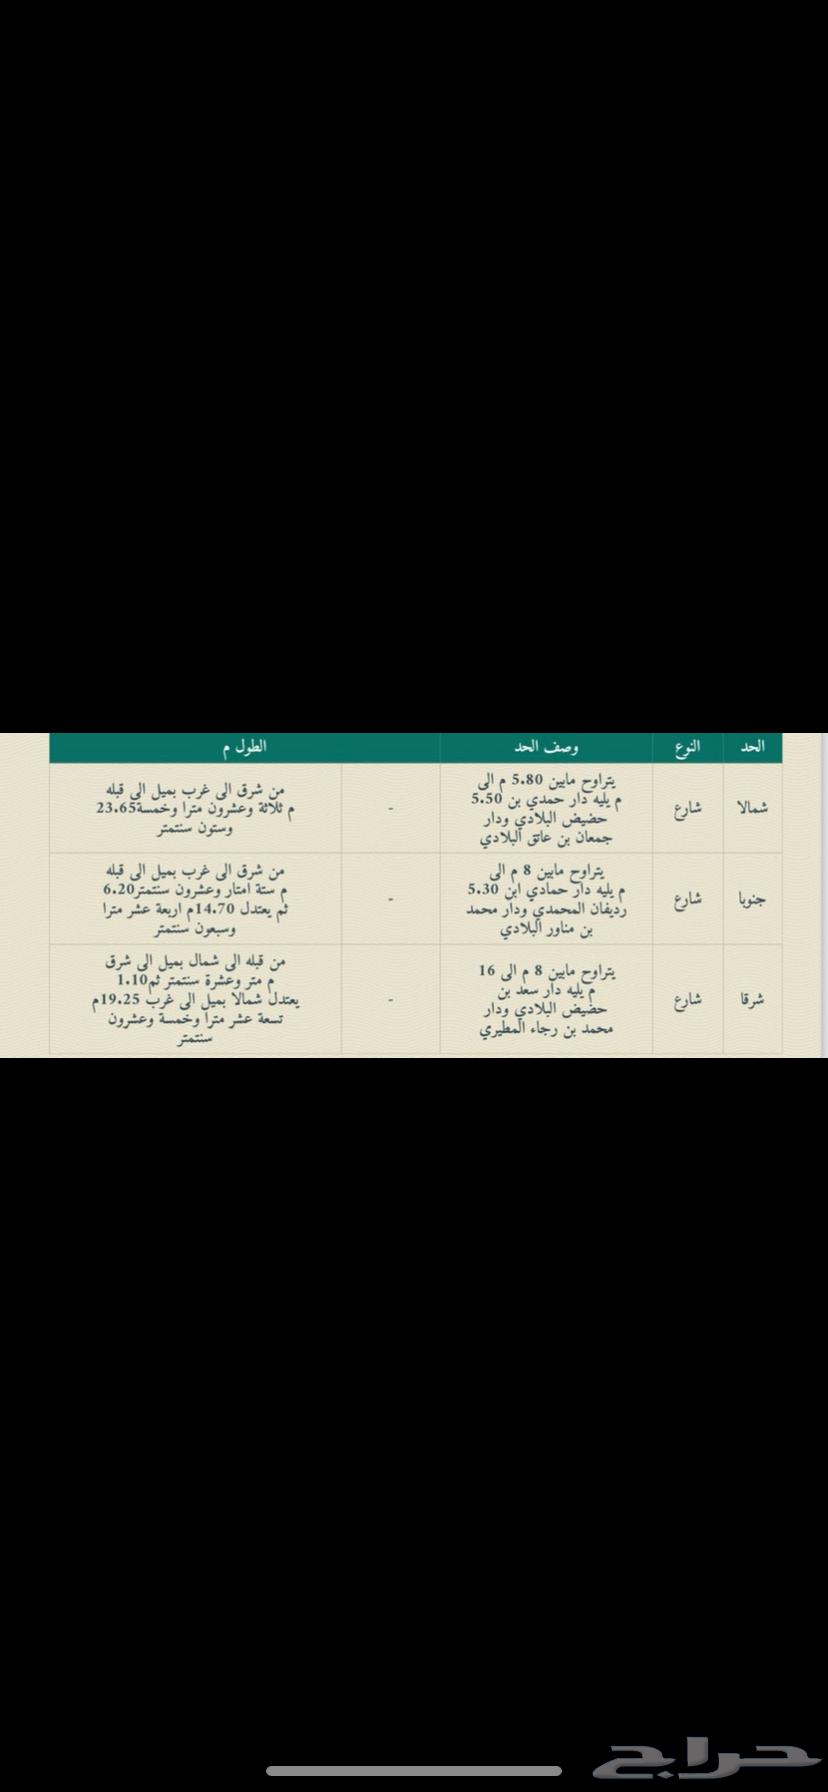 الحد النوع وصف الحد الطول م
شمالا شارع يتراوح مابين 5.80 م الى
5.50 م يليه دار حمدي بن
حضيض البلادي ودار
جمعان بن عاتق البلادي
-
من شرق الى غرب بميل الى قبله
23.65م ثلاثة وعشرون مترا وخمسة
وستون سنتمتر
جنوبا شارع يتراوح مابين 8 م الى
5.30 م يليه دار حمادي ابن
رديفان المحمدي ودار محمد
بن مناور البلادي
-
من شرق الى غرب بميل الى قبله
6.20م ستة امتار وعشرون سنتمتر
ثم يعتدل 14.70م اربعة عشر مترا
وسبعون سنتمتر
شرقا شارع يتراوح مابين 8 م الى 16
م يليه دار سعد بن
حضيض البلادي ودار
محمد بن رجاء المطيري
-
من قبله الى شمال بميل الى شرق
1.10م متر وعشرة سنتمتر ثم
يعتدل شمالا بميل الى غرب 19.25م
تسعة عشر مترا وخمسة وعشرون
سنتمتر
حراج